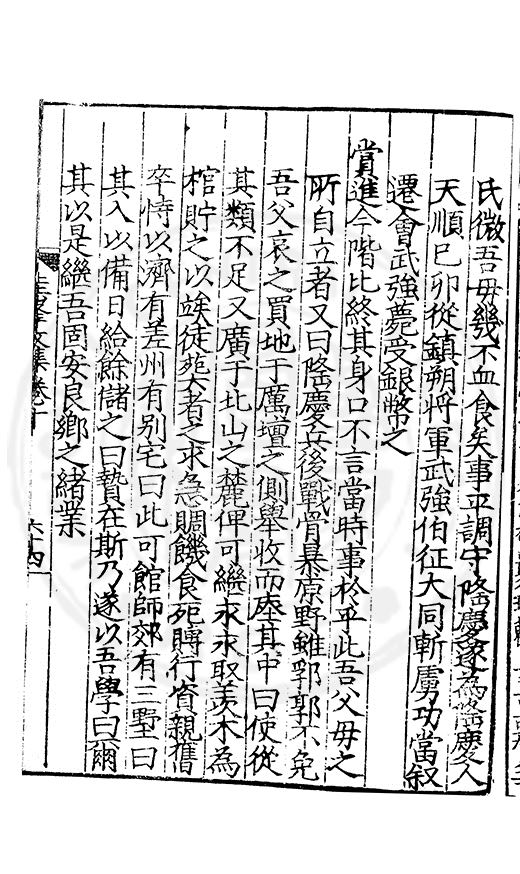 氏微吾母幾不血食矣事平調守隆慶遂為隆慶人
天順己卯從鎮朔將軍武強伯征大同斬虜功當叙
遷會武強薨受銀幣之
賞進今階比終其身口不言當時事於乎此吾父母之
所自立者又曰隆慶兵後戰骨暴原野雖郛郭不免
吾父哀之買地于厲壇之側舉收而座其中曰使從
其類不足又廣于北山之麓俾可繼永永取羡木為
棺貯之以竢徒死者之求急賙饑食死賻行資親舊
卒恃以濟有差州有別宅曰此可館師郊有三墅曰
其入以備日給餘儲之曰贄在斯乃遂以吾學曰爾
其以是繼吾固安良鄉之緒業
文集卷十
六十四